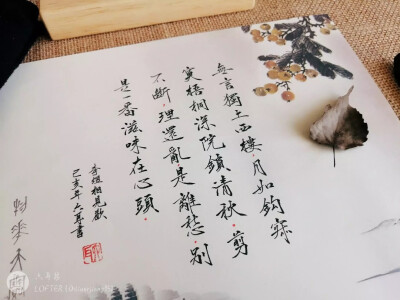 無言獨上西樓月如鈎寂
寞梧桐深院鎖清秋剪
不斷理還亂是離愁別
是一番滋味在心頭
李煜相見歡
己亥年六哥書
LOFTER